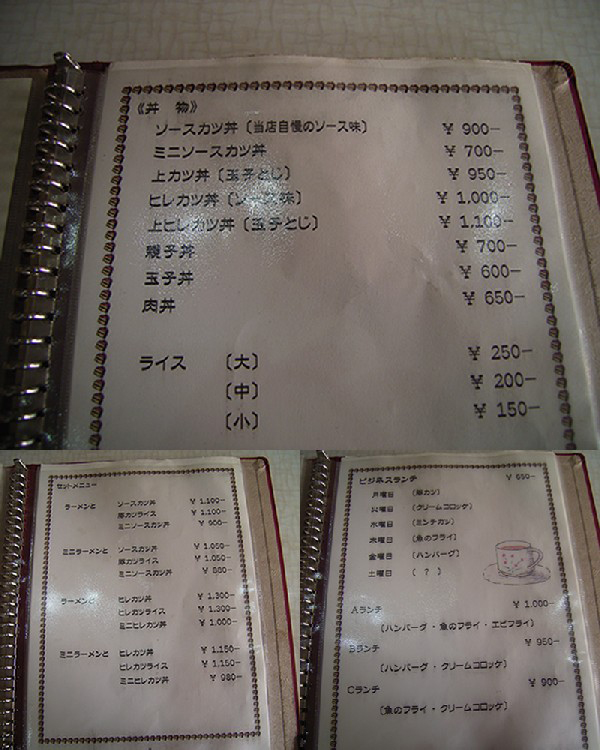 《丼 物》
ソースカツ丼〔当店自慢のソース味〕 ¥ 900-
ミニソースカツ丼 ¥ 700-
上カツ丼〔玉子とじ〕 ¥ 950-
ヒレカツ丼〔ソース味〕 ¥ 1,000-
上ヒレカツ丼〔玉子とじ〕 ¥ 1,100-
親子丼 ¥ 700-
玉子丼 ¥ 600-
肉丼 ¥ 650-
ライス 〔大〕 ¥ 250-
〔中〕 ¥ 200-
〔小〕 ¥ 150-
セットメニュー
ラーメンと ソースカツ丼 ¥ 1,100-
豚カツライス ¥ 1,100-
ミニソースカツ丼 ¥ 900-
ミニラーメンと ソースカツ丼 ¥ 1,050-
豚カツライス ¥ 1,050-
ミニソースカツ丼
ラーメンと ヒレカツ丼 ¥ 1,300-
ヒレカツライス ¥ 1,300-
ミニヒレカツ丼 ¥ 1,000-
ミニラーメンと ヒレカツ丼 ¥ 1,150-
ヒレカツライス ¥ 1,150-
ミニヒレカツ丼 ¥ 980-
ビジネスランチ ¥ 650-
月曜日 (豚カツ)
火曜日 (クリームコロッケ)
水曜日 (ミンチカツ)
木曜日 (魚のフライ)
金曜日 (ハンバーグ)
土曜日 ( ? )
Aランチ ¥ 1,000-
〔ハンバーグ・魚のフライ・エビフライ〕
Bランチ ¥ 950-
〔ハンバーグ・クリームコロッケ〕
Cランチ ¥ 900-
〔魚のフライ・クリームコロッケ〕